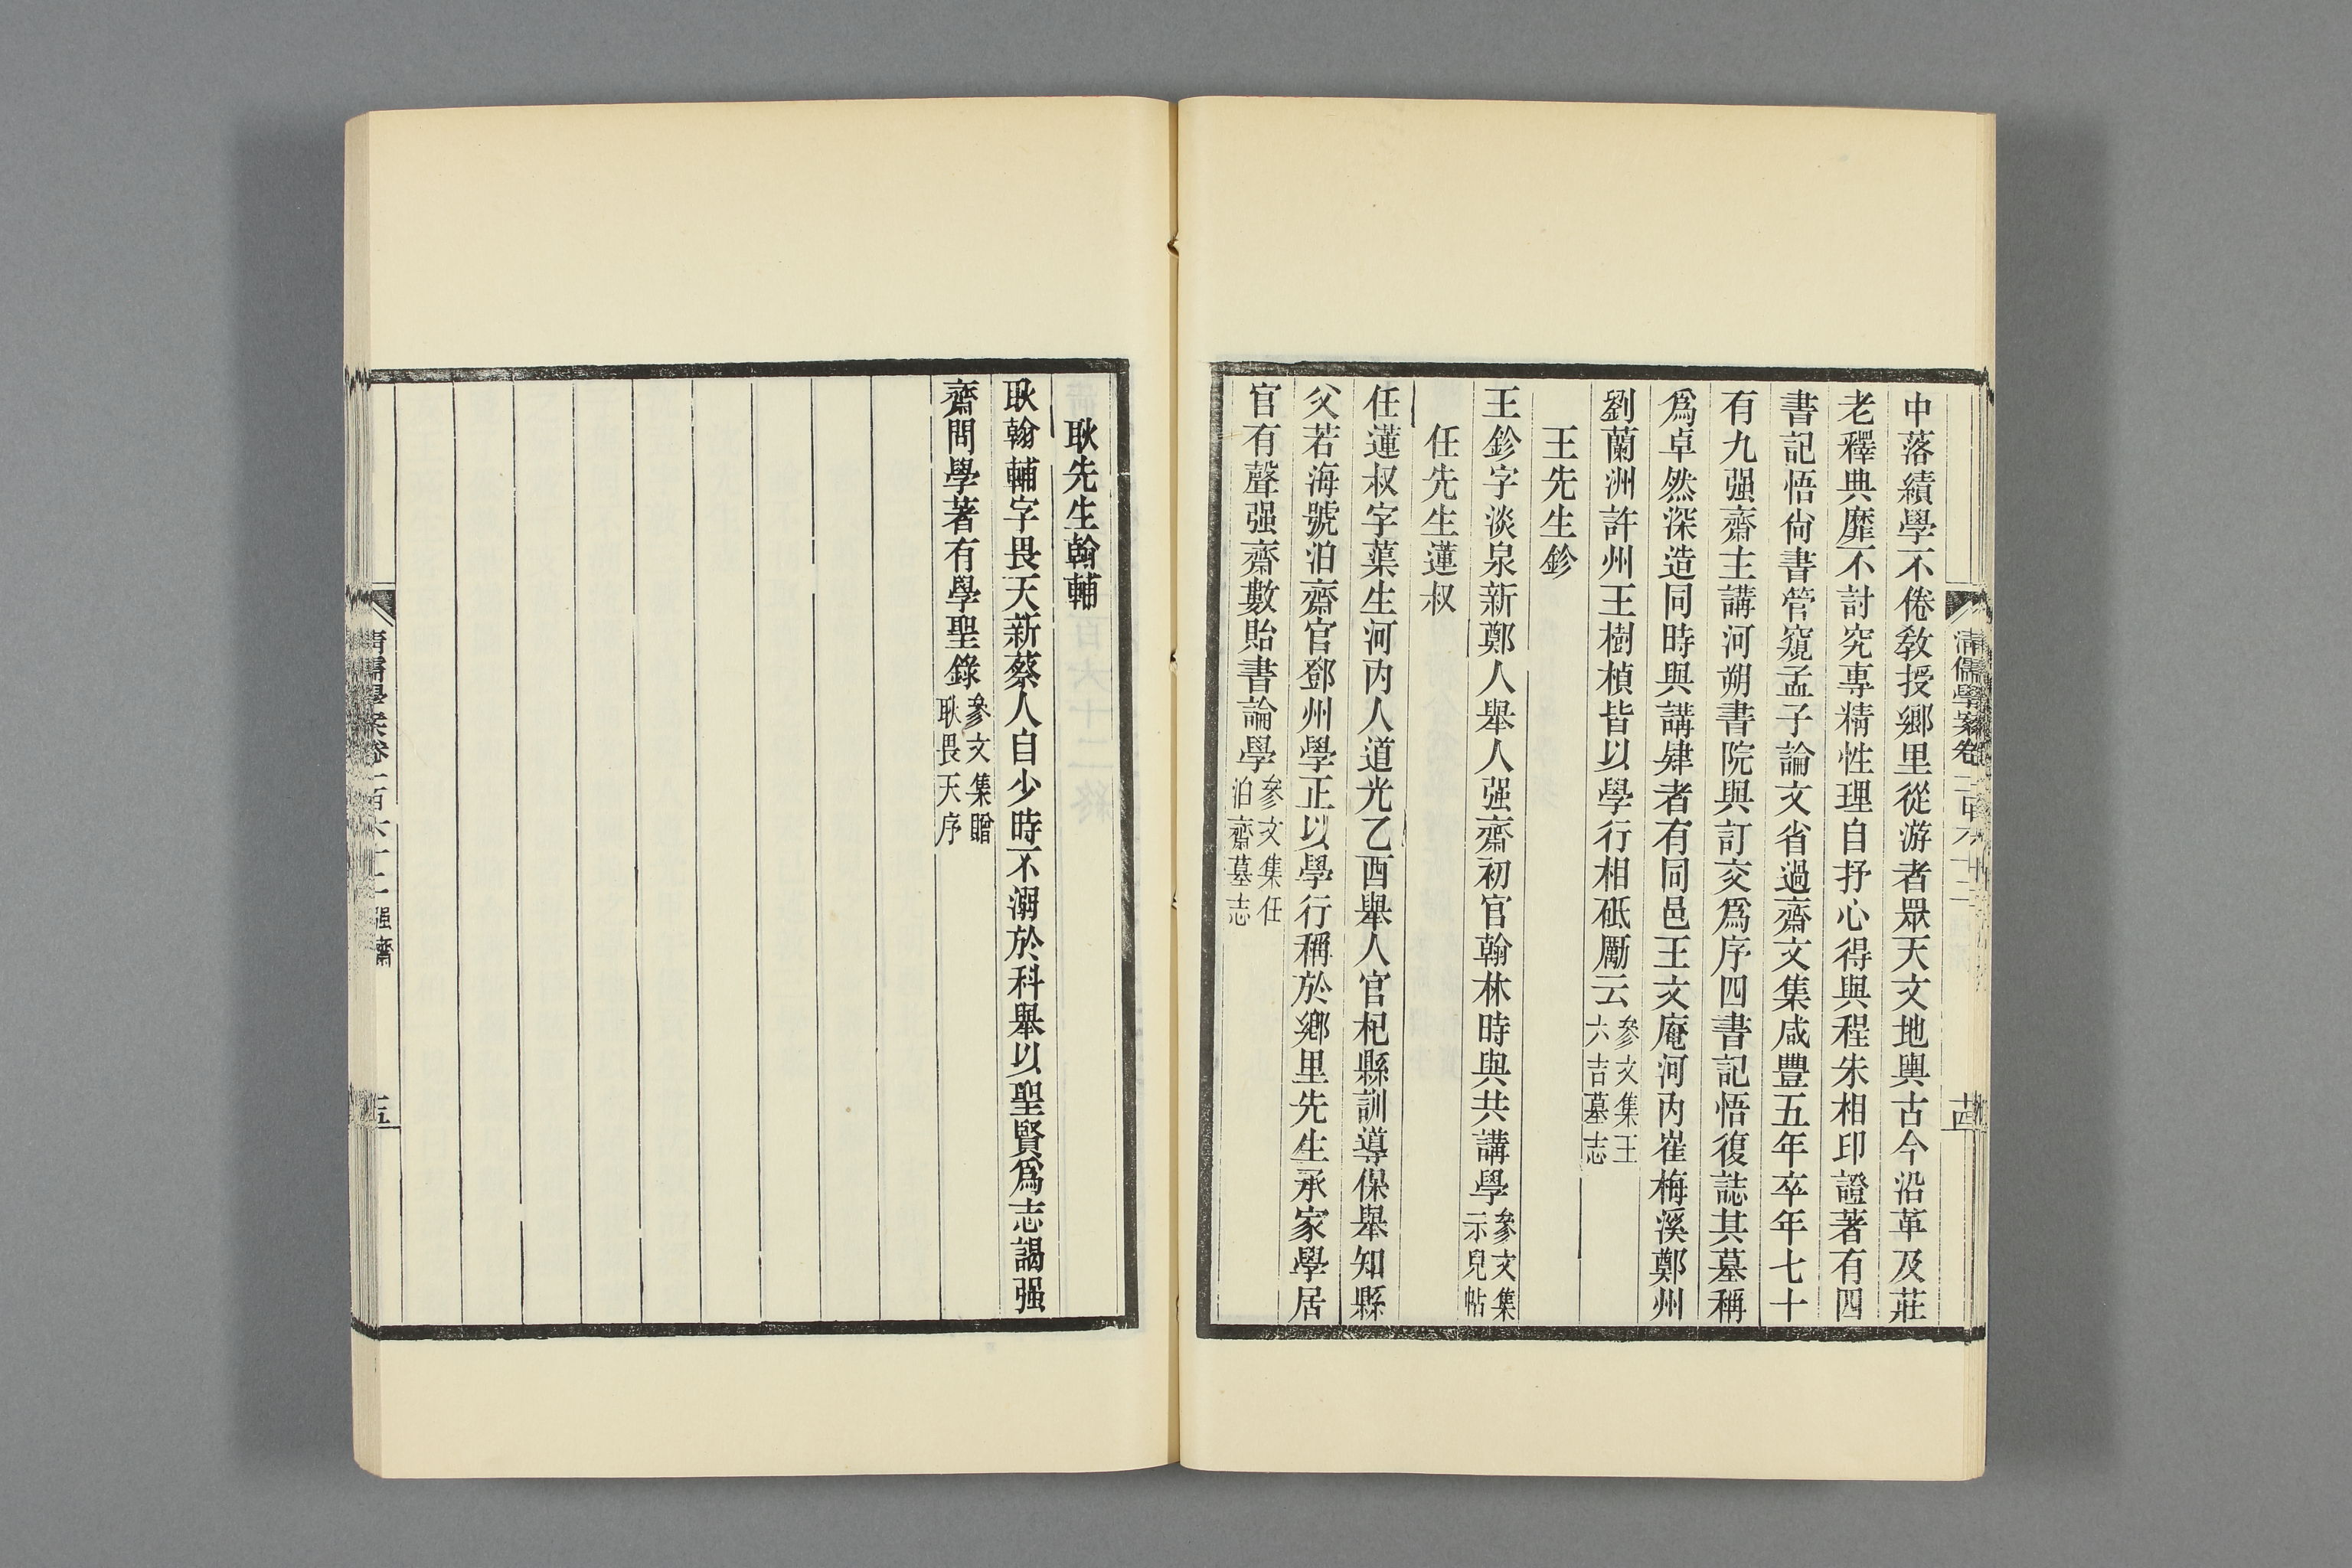 清儒學案卷一百六十二
十四
中落績學不倦敎授鄉里從游者眾天文地輿古今沿革及莊
老釋典靡不討究專精性理自抒心得與程朱相印證著有四
書記悟尙書管窺孟子論文省過齋文集咸豐五年卒年七十
有九强齋主講河朔書院與訂交爲序四書記悟復誌其墓稱
爲卓然深造同時與講肄者有同邑王文庵河内崔梅溪鄭州
劉蘭洲許州王樹楨皆以學行相砥厲云參文集王六吉墓志
王先生鉁
王鉁字淡泉新鄭人舉人强齋初官翰林時與共講學參文集示兒帖
任先生蓮叔
任蓮叔字葉生河内人道光乙酉舉人官杞縣訓導保舉知縣
父若海號泊齋官鄧州學正以學行稱於鄉里先生承家學居
官有聲强齋數貽書論學參文集任泊齋墓志
耿先生翰輔
耿翰輔字畏天新蔡人自少時不溺於科舉以聖賢爲志謁强
齋問學著有學聖錄參文集贈耿畏天序
清儒學案卷一百六十二 强齋
十五